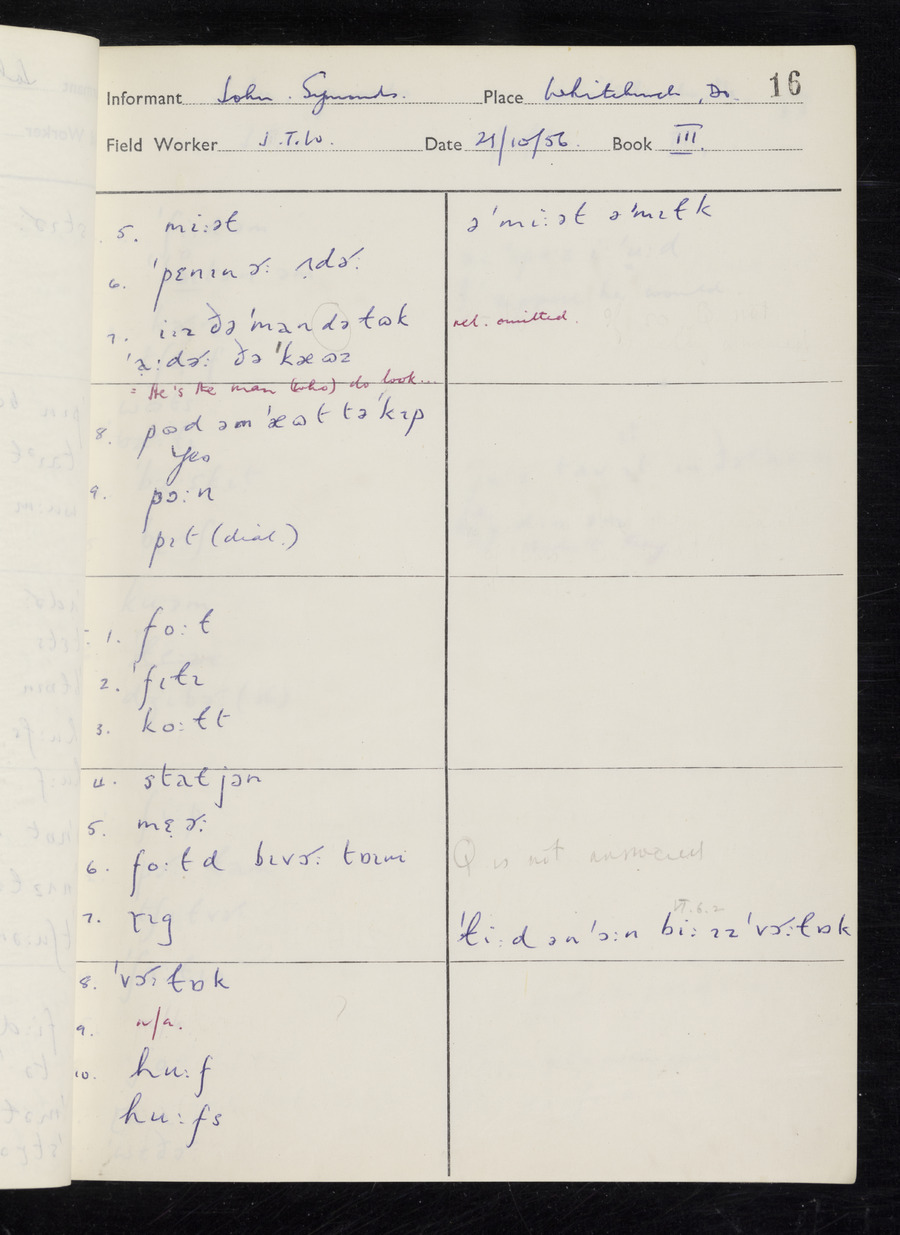 Informant John Symonds. Place Whitchurch, Do. 16
Field Worker J.T.W. Date 21/10/56 Book III.
5. mi:ət ə'mi:ət ə'mɪɫk
6. 'pɛnɪn ɚ: ɪdɚ:
7. ɪzɪ ðə 'man də ɫʊk rel. omitted.
'a:dɚ: ðə 'kæʊz
= He's the man (who) do look...
8. pʊd əm 'æʊt tə 'kɪp
Yeo
9. pɔ:n
pɪt (dial.)
1. fo:ɫ
2. 'fɪɫɪ
3. ko:ɫt
4. staljən
5. mɛɚ:
6. fo:ɫd bɪvɚ: tɒɪmi Q is not answered
7. rɪg VI.6.2
'ti:d ən 'ɔ:n bi: ɪz 'vɚ:ɫɒk
8. 'vɚ:ɫɒk
9. n/a.
10. hu:f
hu:fs